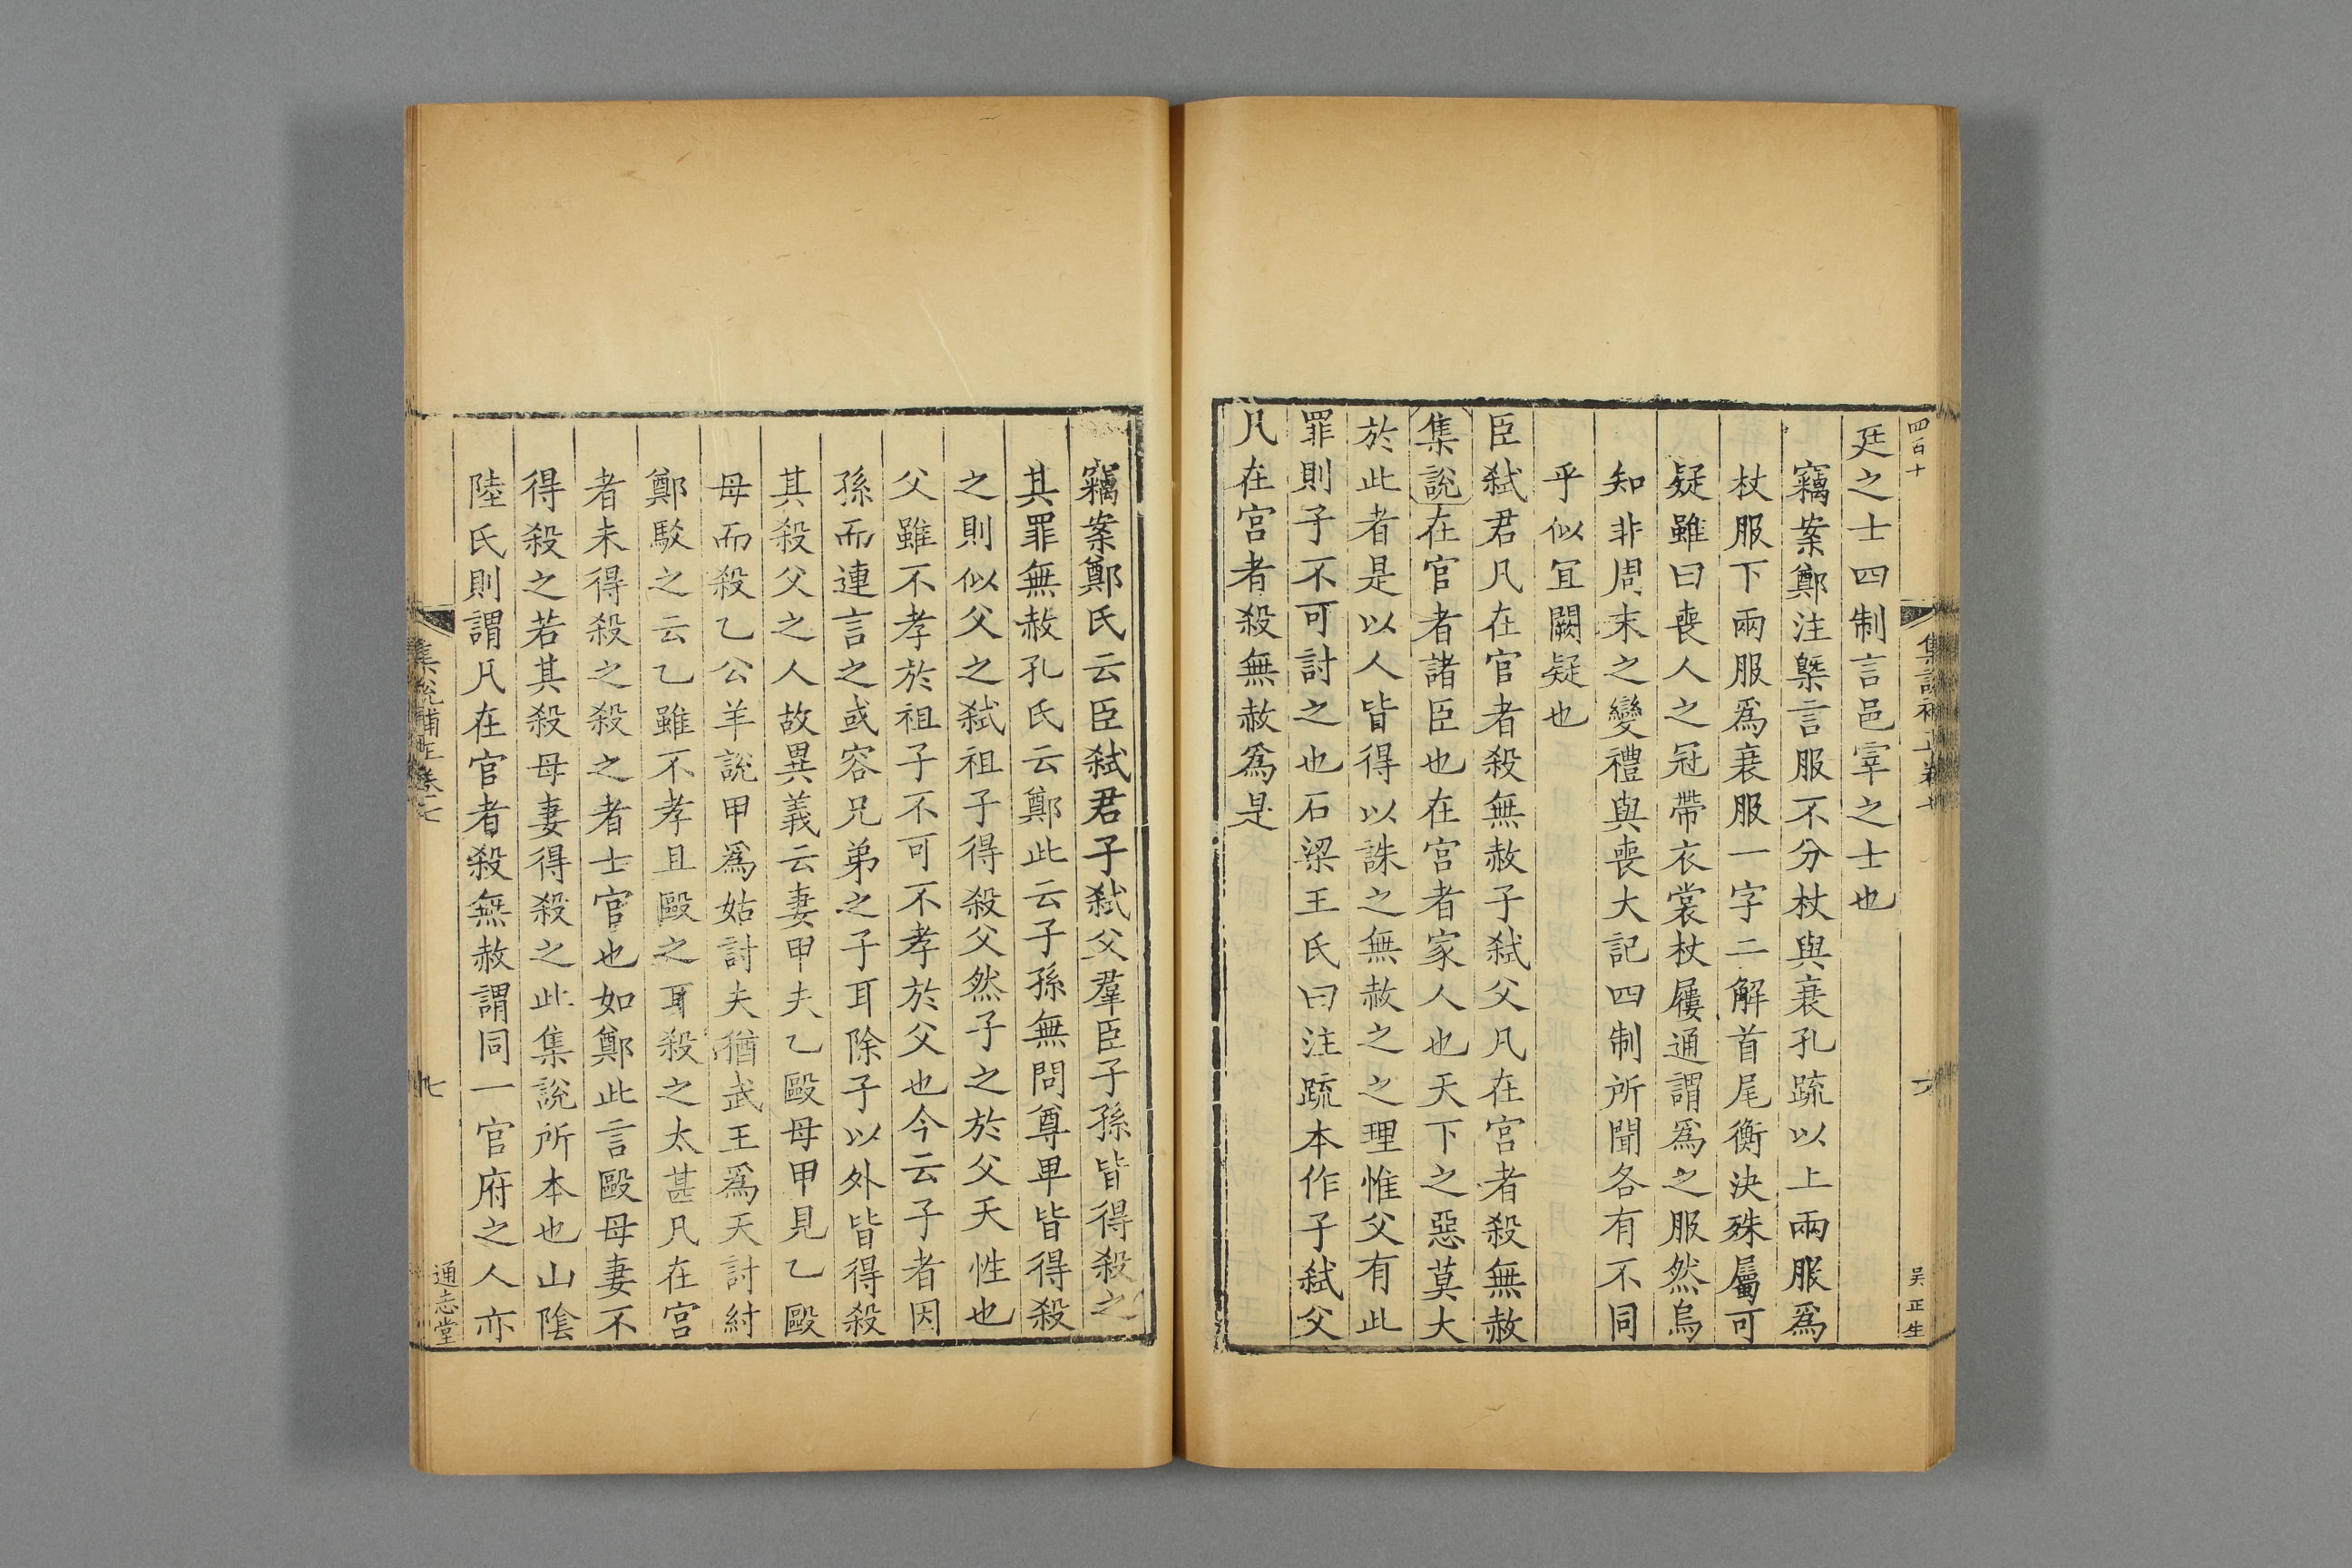 四百十
吳正生
廷之士四制言邑宰之士也
竊案鄭注槩言服不分杖與衰孔疏以上兩服爲
杖服下兩服爲衰服一字二解首尾衡決殊屬可
疑雖曰喪人之冠帶衣裳杖屨通謂爲之服然烏
知非周末之變禮與喪大記四制所聞各有不同
乎似宜闕疑也
臣弑君凡在官者殺無赦子弑父凡在宮者殺無赦
集說在官者諸臣也在宮者家人也天下之惡莫大
於此者是以人皆得以誅之無赦之之理惟父有此
罪則子不可討之也石梁王氏曰注疏本作子弑父
凡在宮者殺無赦爲是
竊案鄭氏云臣弑君子弑父羣臣子孫皆得殺之
其罪無赦孔氏云鄭此云子孫無問尊卑皆得殺
之則似父之弑祖子得殺父然子之於父天性也
父雖不孝於祖子不可不孝於父也今云子者因
孫而連言之或容兄弟之子耳除子以外皆得殺
其殺父之人故異義云妻甲夫乙毆母甲見乙毆
母而殺乙公羊說甲爲姑討夫猶武王爲天討紂
鄭駁之云乙雖不孝且毆之耳殺之太甚凡在宮
者未得殺之殺之者士官也如鄭此言毆母妻不
得殺之若其殺母妻得殺之此集說所本也山陰
陸氏則謂凡在官者殺無赦謂同一官府之人亦
集說補正卷七
通志堂